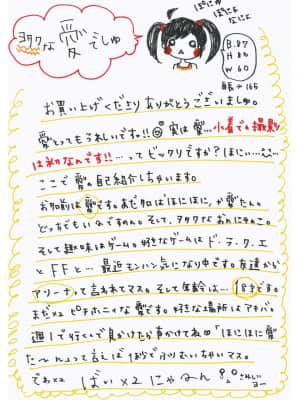 ヨタクな愛でしゅ
ぽにゅ
ぽにゅ
なにょ
B.87
H.86
W.60
身長→165
お買い上げくださりありがとうございましゅ。
愛とってもうれしいです!! 実は愛…水着での撮影
は初なんです!! …ってビックリですか?ほにぃ…
ここで愛の自己紹介しちゃいます。
お名前は愛です。あだ名は「ほにほに」か愛たん。
どっちでもいいですねん。そして、ヲタクなおんにゃのこ。
そして趣味はゲーム。好きなゲームはド・ラ・ク・エ
とFFと… 最近モンハン気になり中です。友達から
アリーナって言われてマス。そして年齢は…18才です。
まだ××ピチホニィな愛です。好きな場所はアキバ。
週1で行くんで見かけたか声かけてね 「ほにほに愛
た〜ん」って言えば1秒でふりむいちゃいマス。
でわ×2 ばい×2 にゃーん